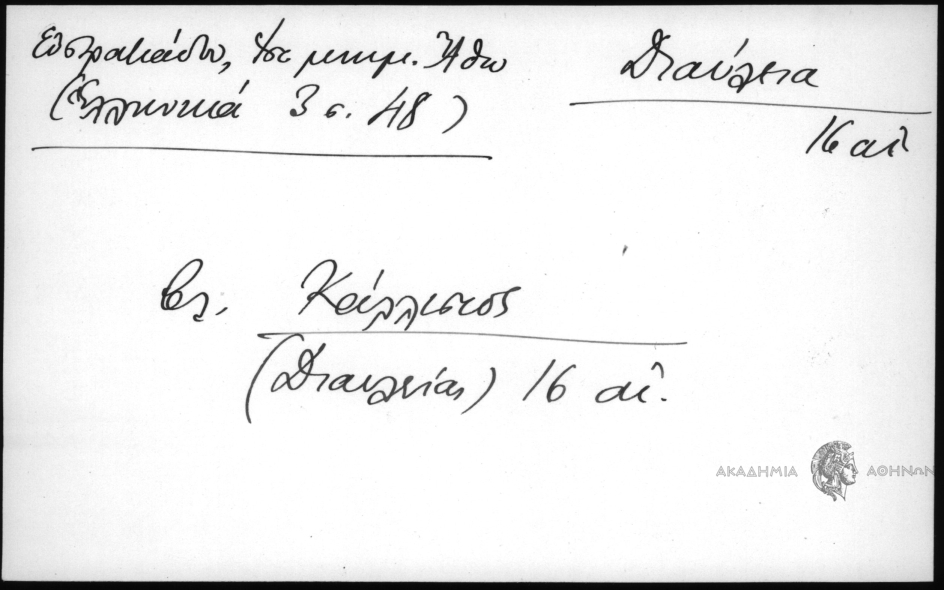 Εὐστρατιάδου, Ἱστ. μνημ. Ἄθω
(Ἑλληνικά 3 σ. 48)
Διαύλεια
16 αἰ
βλ. Κάλλιστος
(Διαυλείας) 16 αἰ.
ΑΚΑΔΗΜΙΑ ΑΘΗΝΩΝ